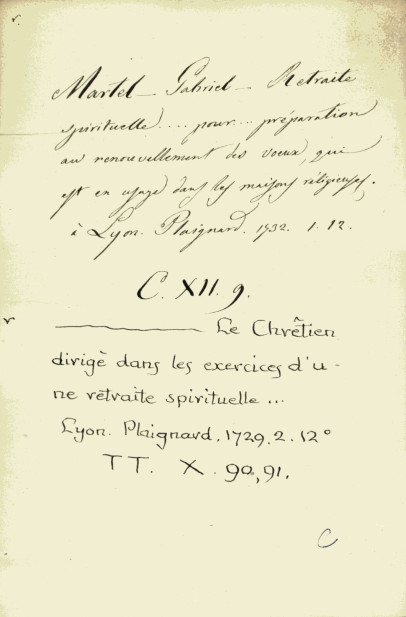 Martel - Gabriel - Retraite
spirituelle .... pour ... préparation
au renouvellement des voeux, qui
est en usage dans les maisons réligieuses,
à Lyon. Plaignard. 1732. 1. 12.
C. XII. 9.
Le Chrêtien
dirigè dans les exercices d'u-
ne retraite spirituelle ...
Lyon. Plaignard. 1729. 2. 12°
TT. X. 90, 91.
C